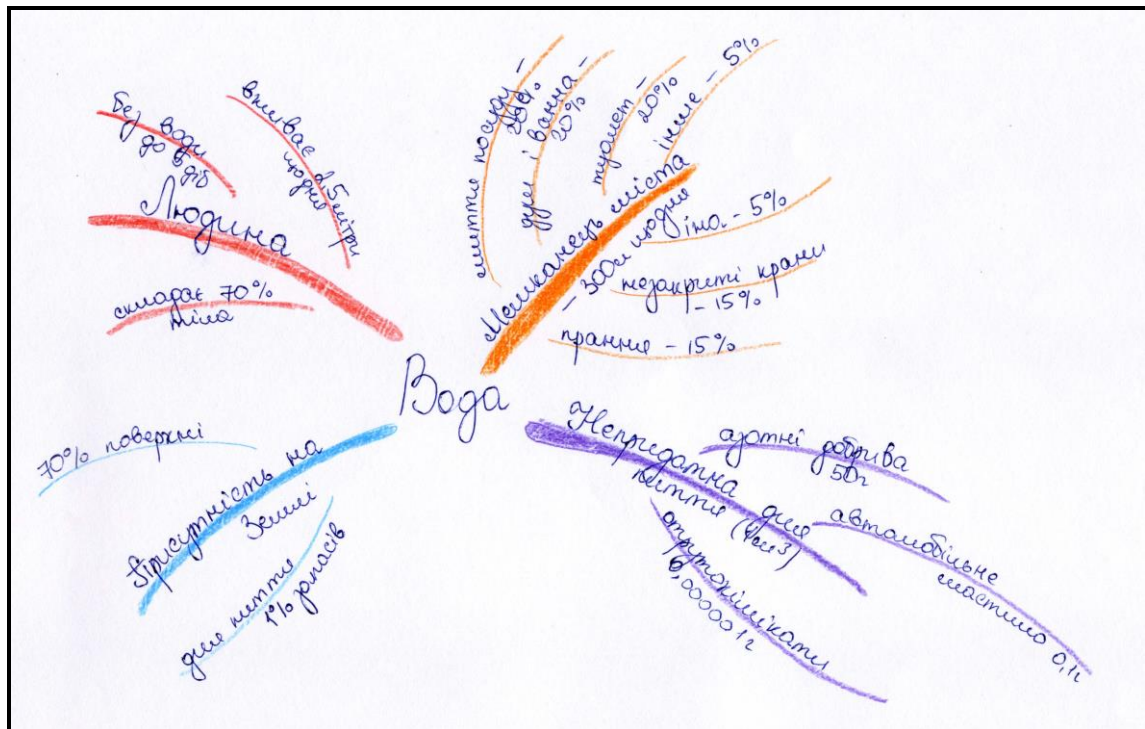 Вода
Людина
без води
до 5 діб
випиває 2,5 літри
щодня
складає 70%
тіла
Мешканець міста
– 300л щодня
миття посуду –
20%
душ і ванна –
20%
туалет –
20%
інше – 5%
їжа – 5%
незакриті крани
– 15%
прання – 15%
Непридатна для
пиття (1м3)
азотні добрива
50г
автомобільне
мастило 0,1г
отрутохімікати
0,000001г
Присутність на
Землі
70% поверхні
для пиття
1% запасів